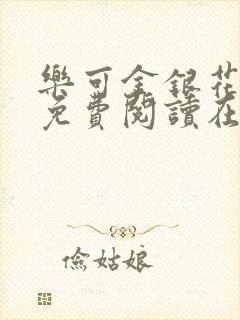 樂可金銀花
免費閱讀在
儉姑娘